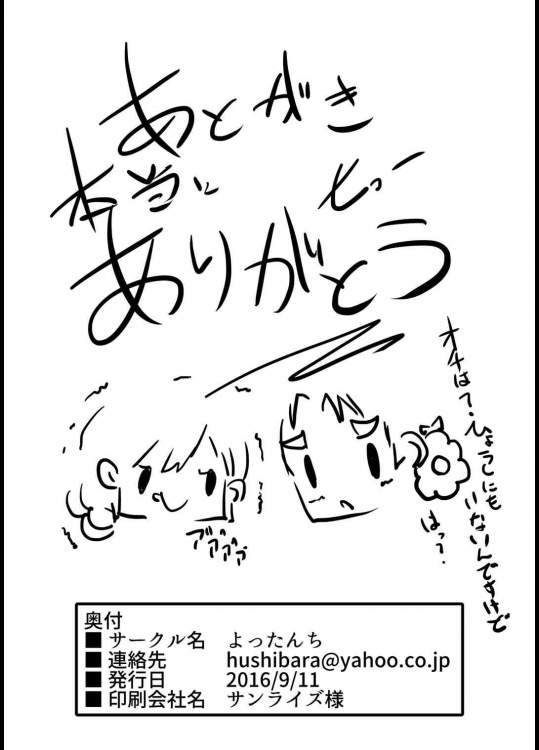 あとがき
本当に
ありがとう
オチは?・ひょうしにも
いないんですけど
はっ?
アアアアア
奥付
■ サークル名　よったんち
■ 連絡先　hushibara@yahoo.co.jp
■ 発行日　2016/9/11
■ 印刷会社名　サンライズ様